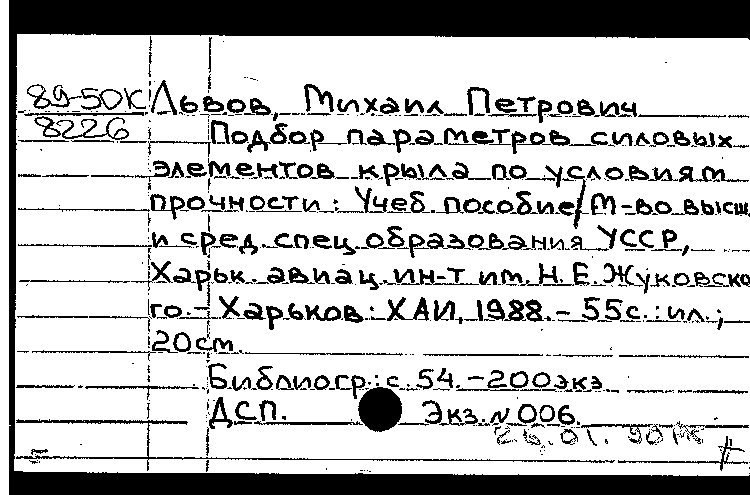 89-50К Львов, Михаил Петрович
8226 Подбор параметров силовых
элементов крыла по условиям
прочности: Учеб. пособие/М-во высш.
и сред. спец. образования УССР,
Харьк. авиац. ин-т им. Н. Е. Жуковско
го.- Харьков: ХАИ, 1988.- 55с.: ил.;
20см.
Библиогр.: с. 54. -200экз
ДСП. Экз. N 006.
26.01.90